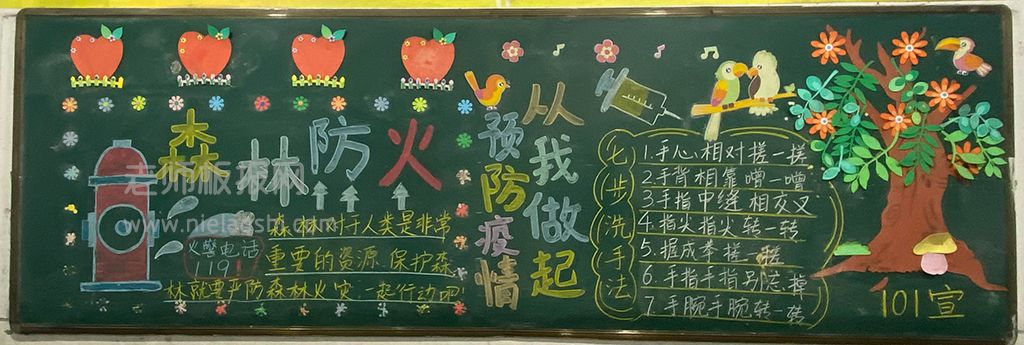 森林防火
火警电话
119!
森林对于人类是非常
重要的资源.保护森
林就要严防森林火灾.一起行动吧!
预防疫情
从我做起
七步洗手法
1.手心相对搓一搓
2.手背相靠噌一噌
3手指中缝相交叉
4.指尖指尖转一转
5.握成拳搓一搓
6.手指手指别忘掉
7.手腕手腕转一转
101宣
老师板报网